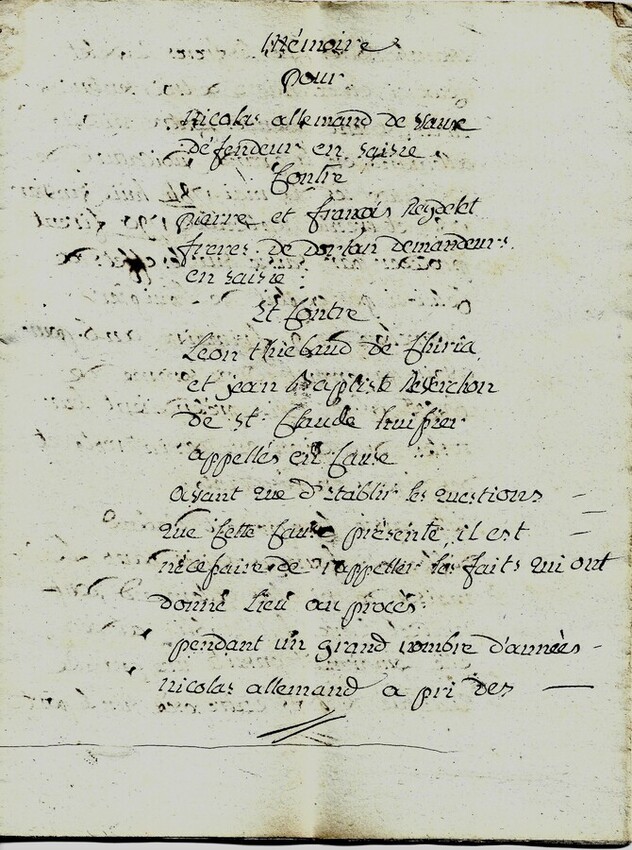 Mémoire
pour
Nicolas allemand de vaux
défendeur en saisie
Contre
pierre et françois Reydelet
freres de dortan demandeurs
en saisie
Et Contre
Leon thiebaud de Chiria
et jean baptiste Reverchon
de st Claude huissier
appellés en Cause
avant que d'Etablir les questions
que Cette Cause présente, il est
nécessaire de rappeller les faits qui ont
donné Lieu au procès
pendant un grand nombre d'années
nicolas allemand a pri des